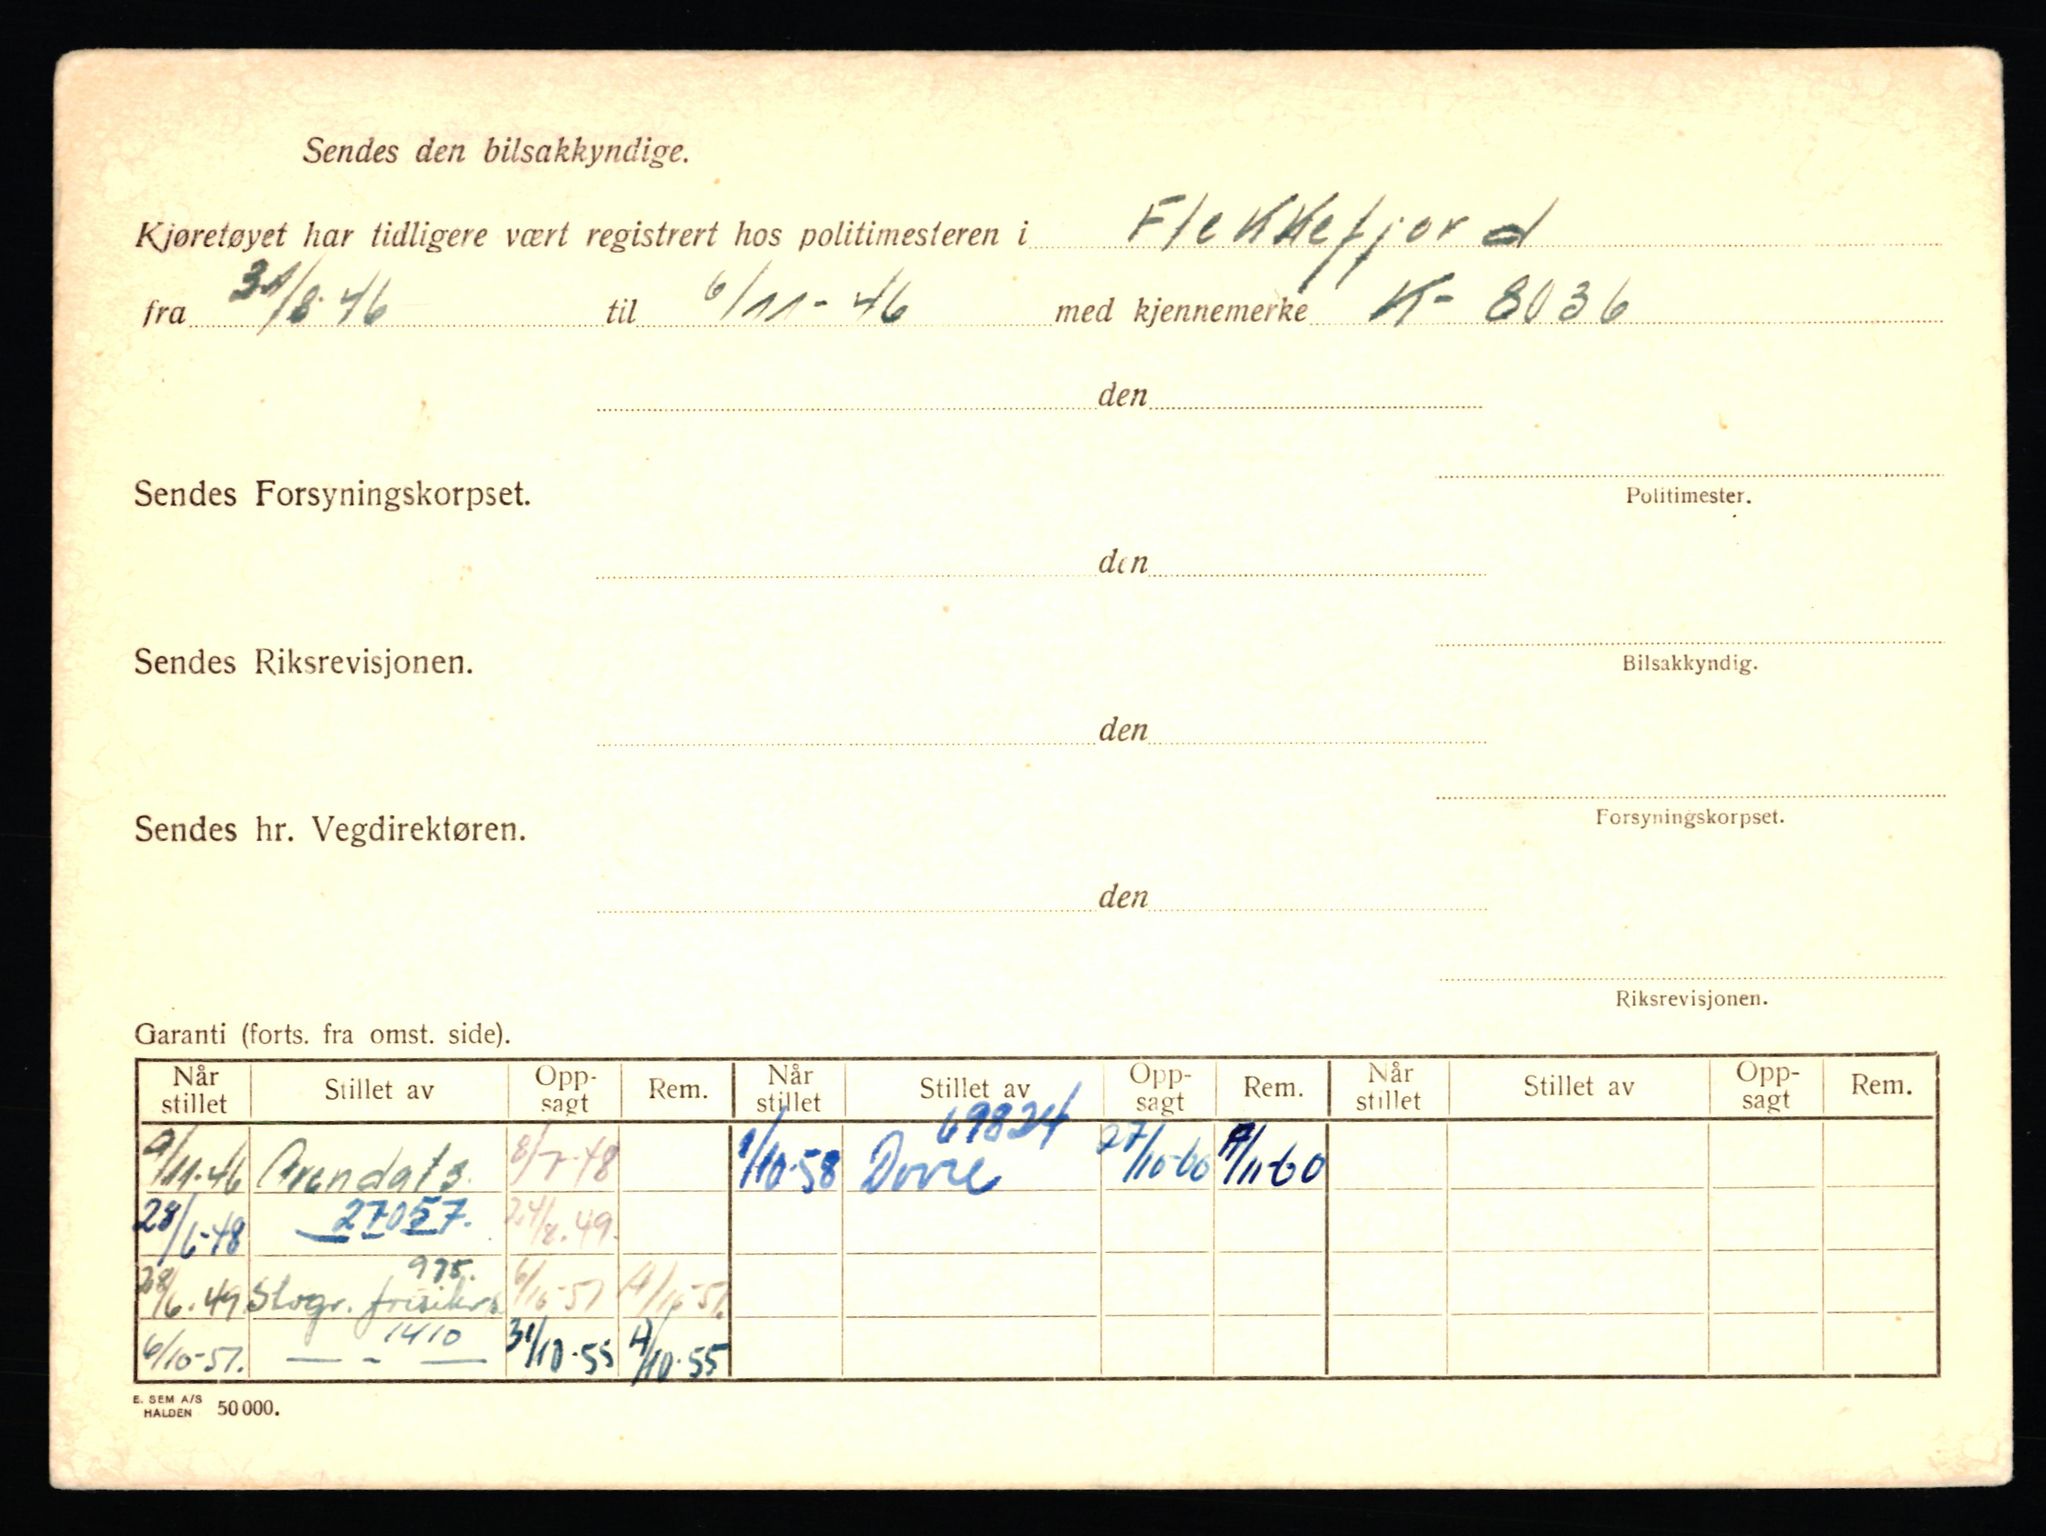 Sendes den bilsakkyndige.
Kjøretøyet har tidligere vært registrert hos politimesteren i Flekkefjord
fra 31/8-46 til 6/11-46 med kjennemerke K-8036
den
Politimester.
Sendes Forsyningskorpset.
den
Bilsakkyndig.
Sendes Riksrevisjonen.
den
Forsyningskorpset.
Sendes hr. Vegdirektøren.
den
Riksrevisjonen.
Garanti (forts. fra omst. side).
Når stillet Stillet av Opp-sagt Rem. Når stillet Stillet av Opp-sagt Rem. Når stillet Stillet av Opp-sagt Rem.
69824
/11-46 Arendals 8/7-48 1/10-58 Dovre 27/10-60 /11-60
28/6-48 27057. 24/8.49.
975.
28/6.49. Storgr.
1410
6/10-51. — - — 31/10-55 /10-55
E. SEM A/S
HALDEN 50 000.